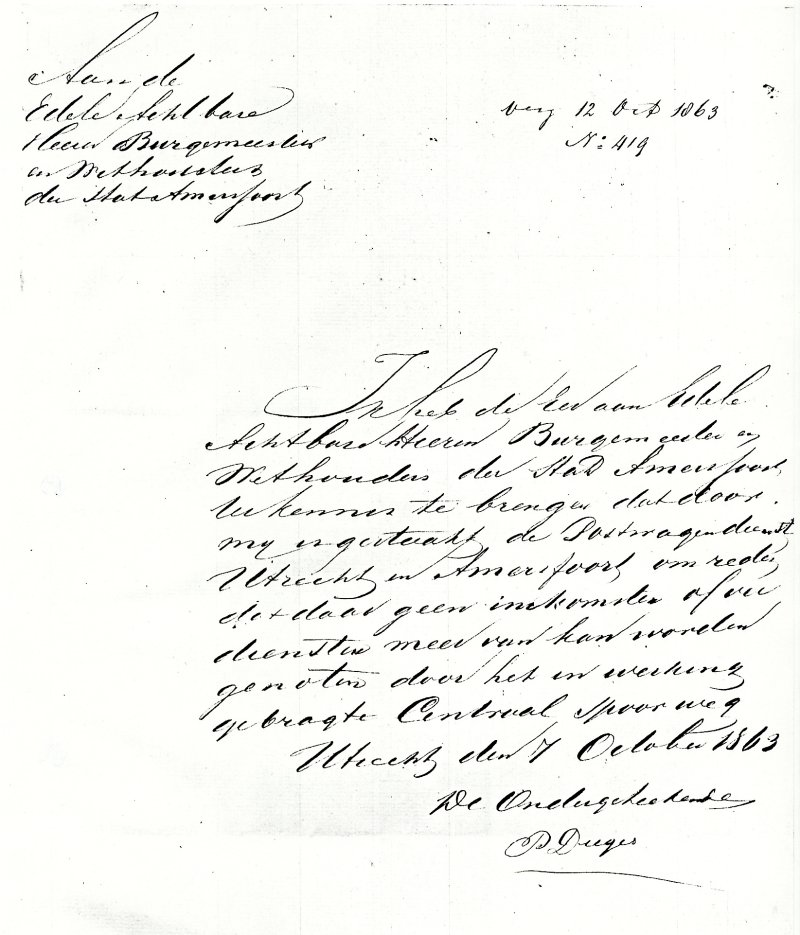 Aan de
Edele Achtbare
Heeren Burgemeester
en Wethouders
der Stat Amersfoort
verg 12 Oct 1863
No: 419
Ik heb de Eer aan Edele
Achtbare Heeren Burgemeester en
Wethouders der Stad Amersfoort
te kennis te brengen dat door
my is gestaakt de Postwagendienst
Utrecht en Amersfoort om reden
dat daar geen inkomsten of ver
diensten meer van kan worden
genoten door het in werking
gebragte Centraal Spoorweg
Utrecht den 7 October 1863
De Ondergeteekende
P